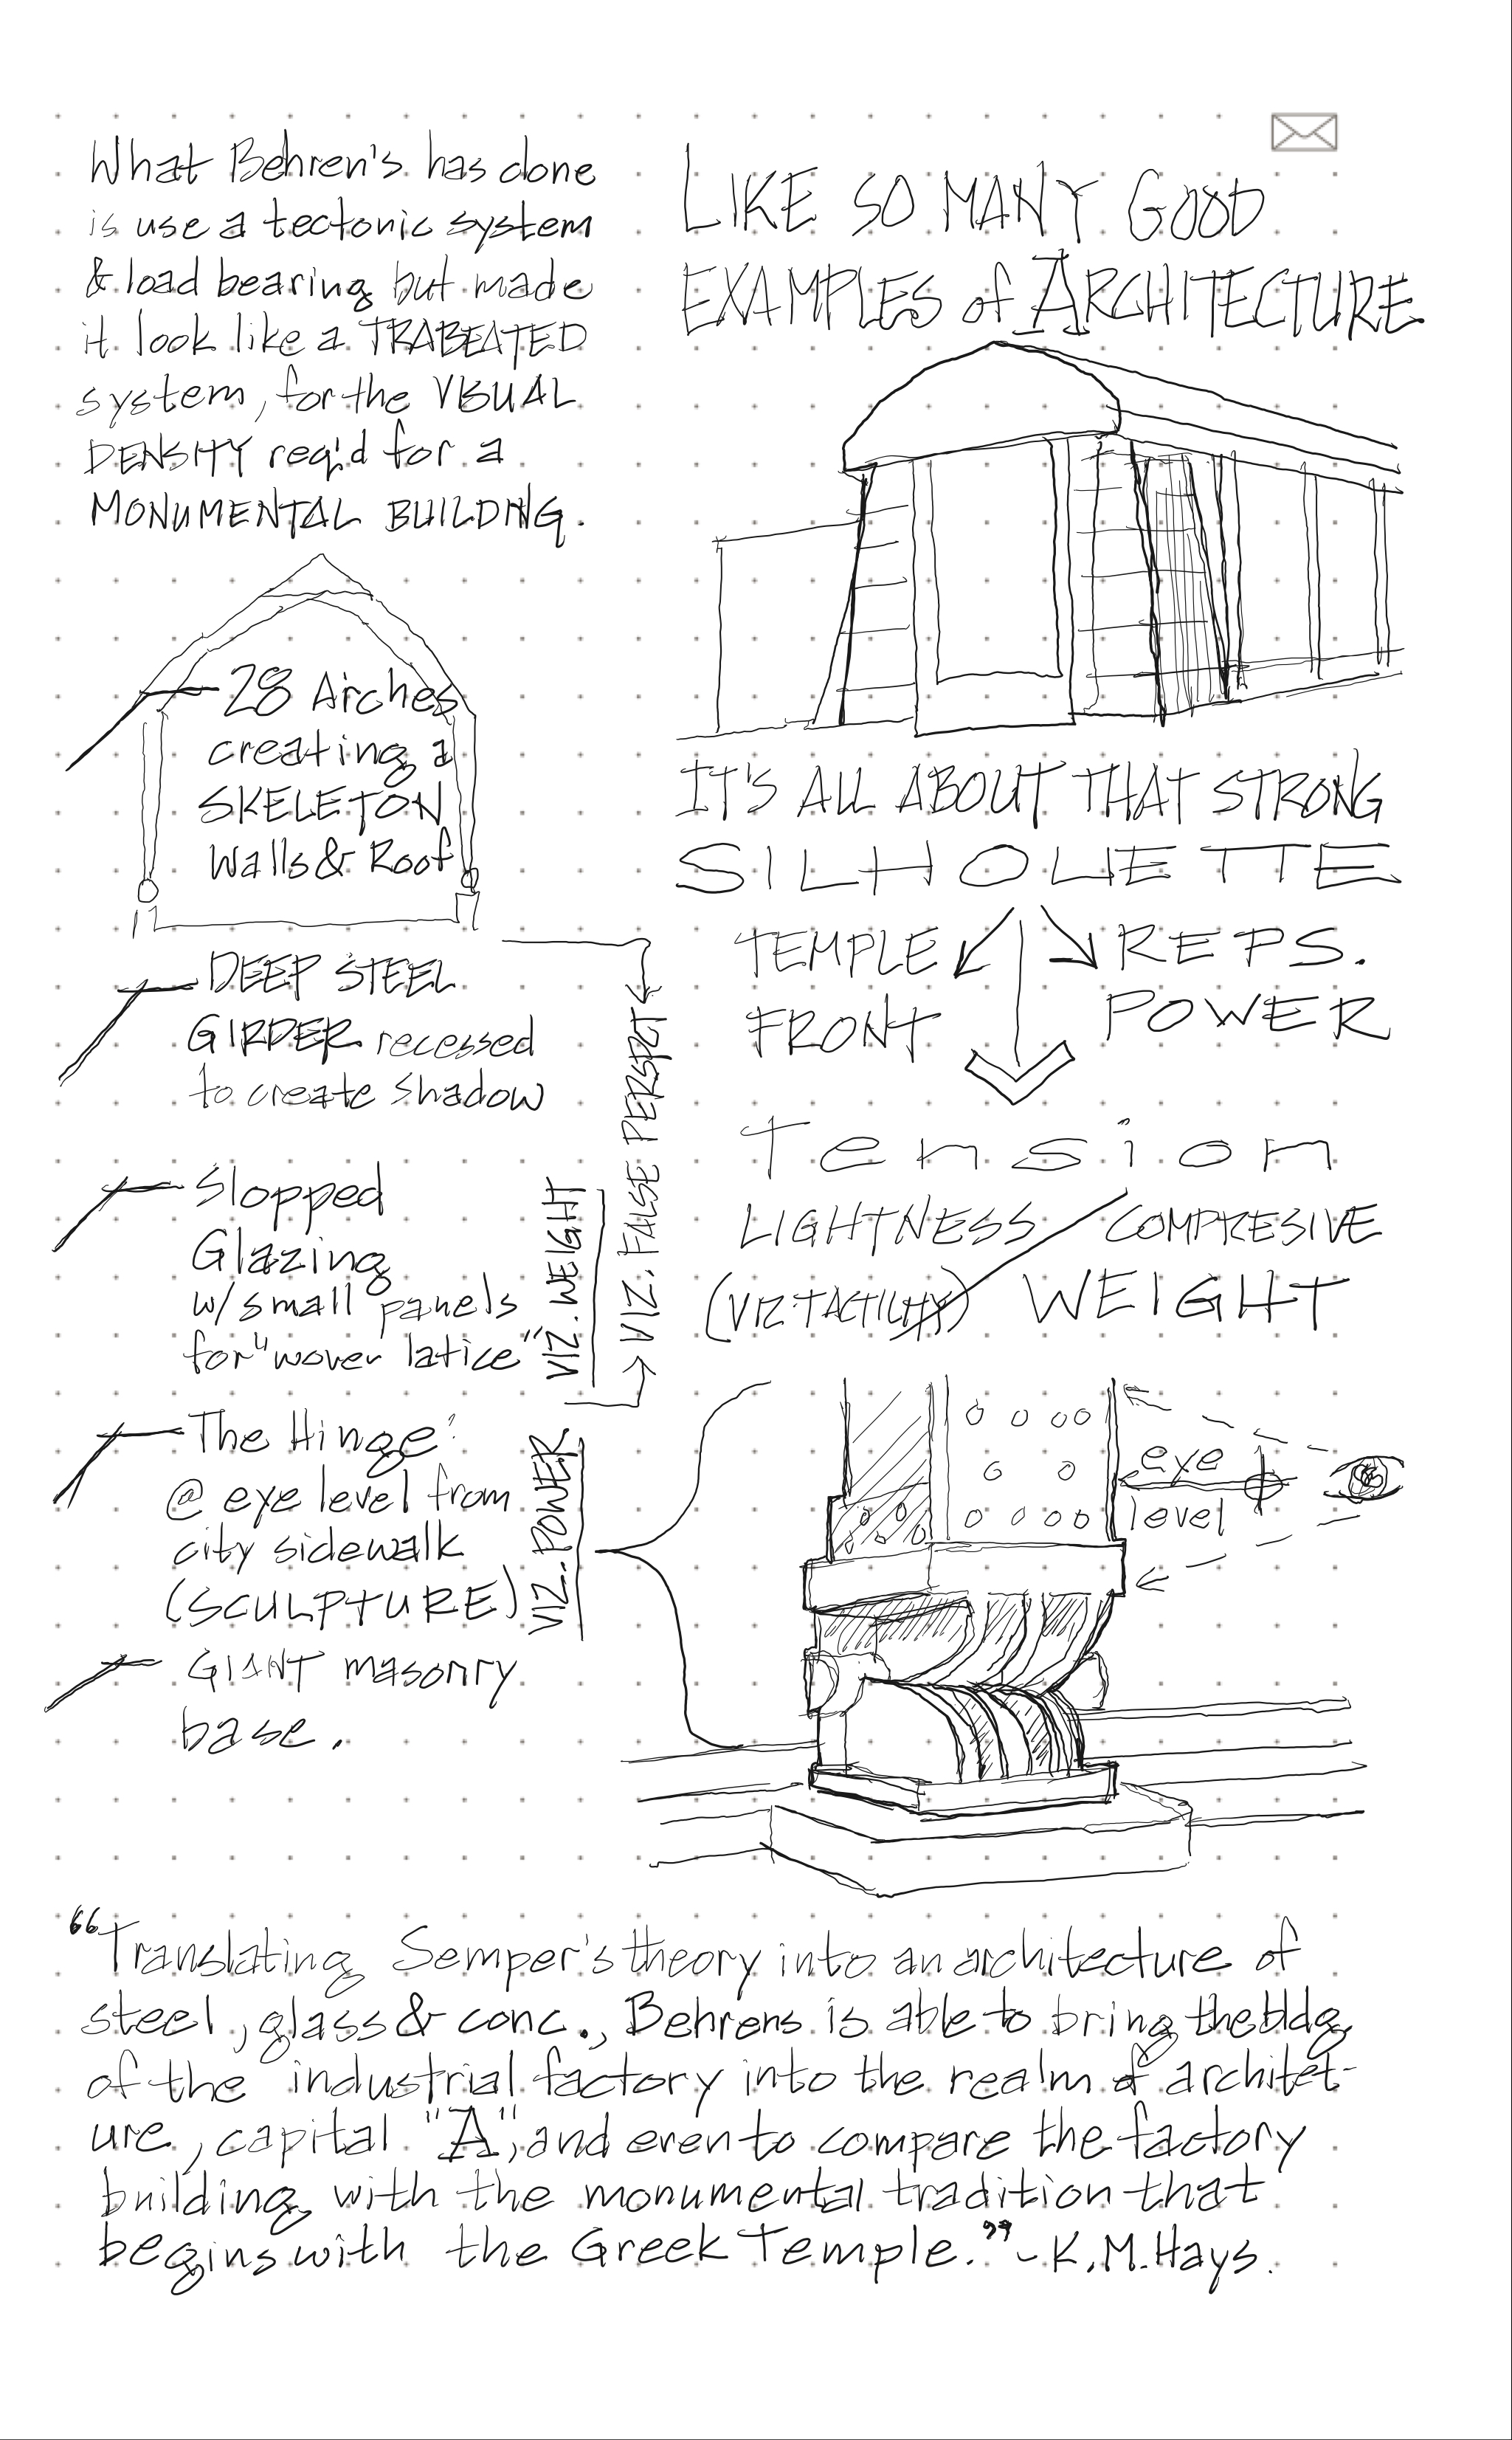 What Behren's has done
is use a tectonic system
& load bearing but made
it look like a TRABEATED
system, for the VISUAL
DENSITY req'd for a
MONUMENTAL BUILDING.
28 Arches
creating a
SKELETON
Walls & Roof
DEEP STEEL
GIRDER recessed
to create shadow
Slopped
Glazing
w/ small panels
for "woven latice"
VIZ. WEIGHT
VIZ. FALSE PERSPCT
The Hinge:
@ eye level from
city sidewalk
(SCULPTURE)
VIZ. POWER
GIANT masonry
base.
LIKE SO MANY GOOD
EXAMPLES of ARCHITECTURE
IT'S ALL ABOUT THAT STRONG
SILHOUETTE
TEMPLE
FRONT
REPS.
POWER
Tension
LIGHTNESS / COMPRESIVE
(VIZ. TACTILITY) WEIGHT
eye
level
"Translating Semper's theory into an architecture of
steel, glass & conc., Behrens is able to bring the bldg
of the industrial factory into the realm of architet-
ure, capital "A", and even to compare the factory
building with the monumental tradition that
begins with the Greek Temple." - K.M. Hays.